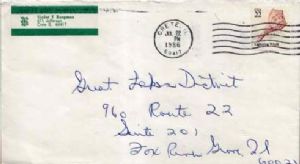 Vector F. Bangeman
911 Jefferson
Crete IL 60417
CRETE, IL
JUL 22
PM
1986
60417
22
Great Lakes District
960 Route 22
Suite 201
Fox River Grove, Il